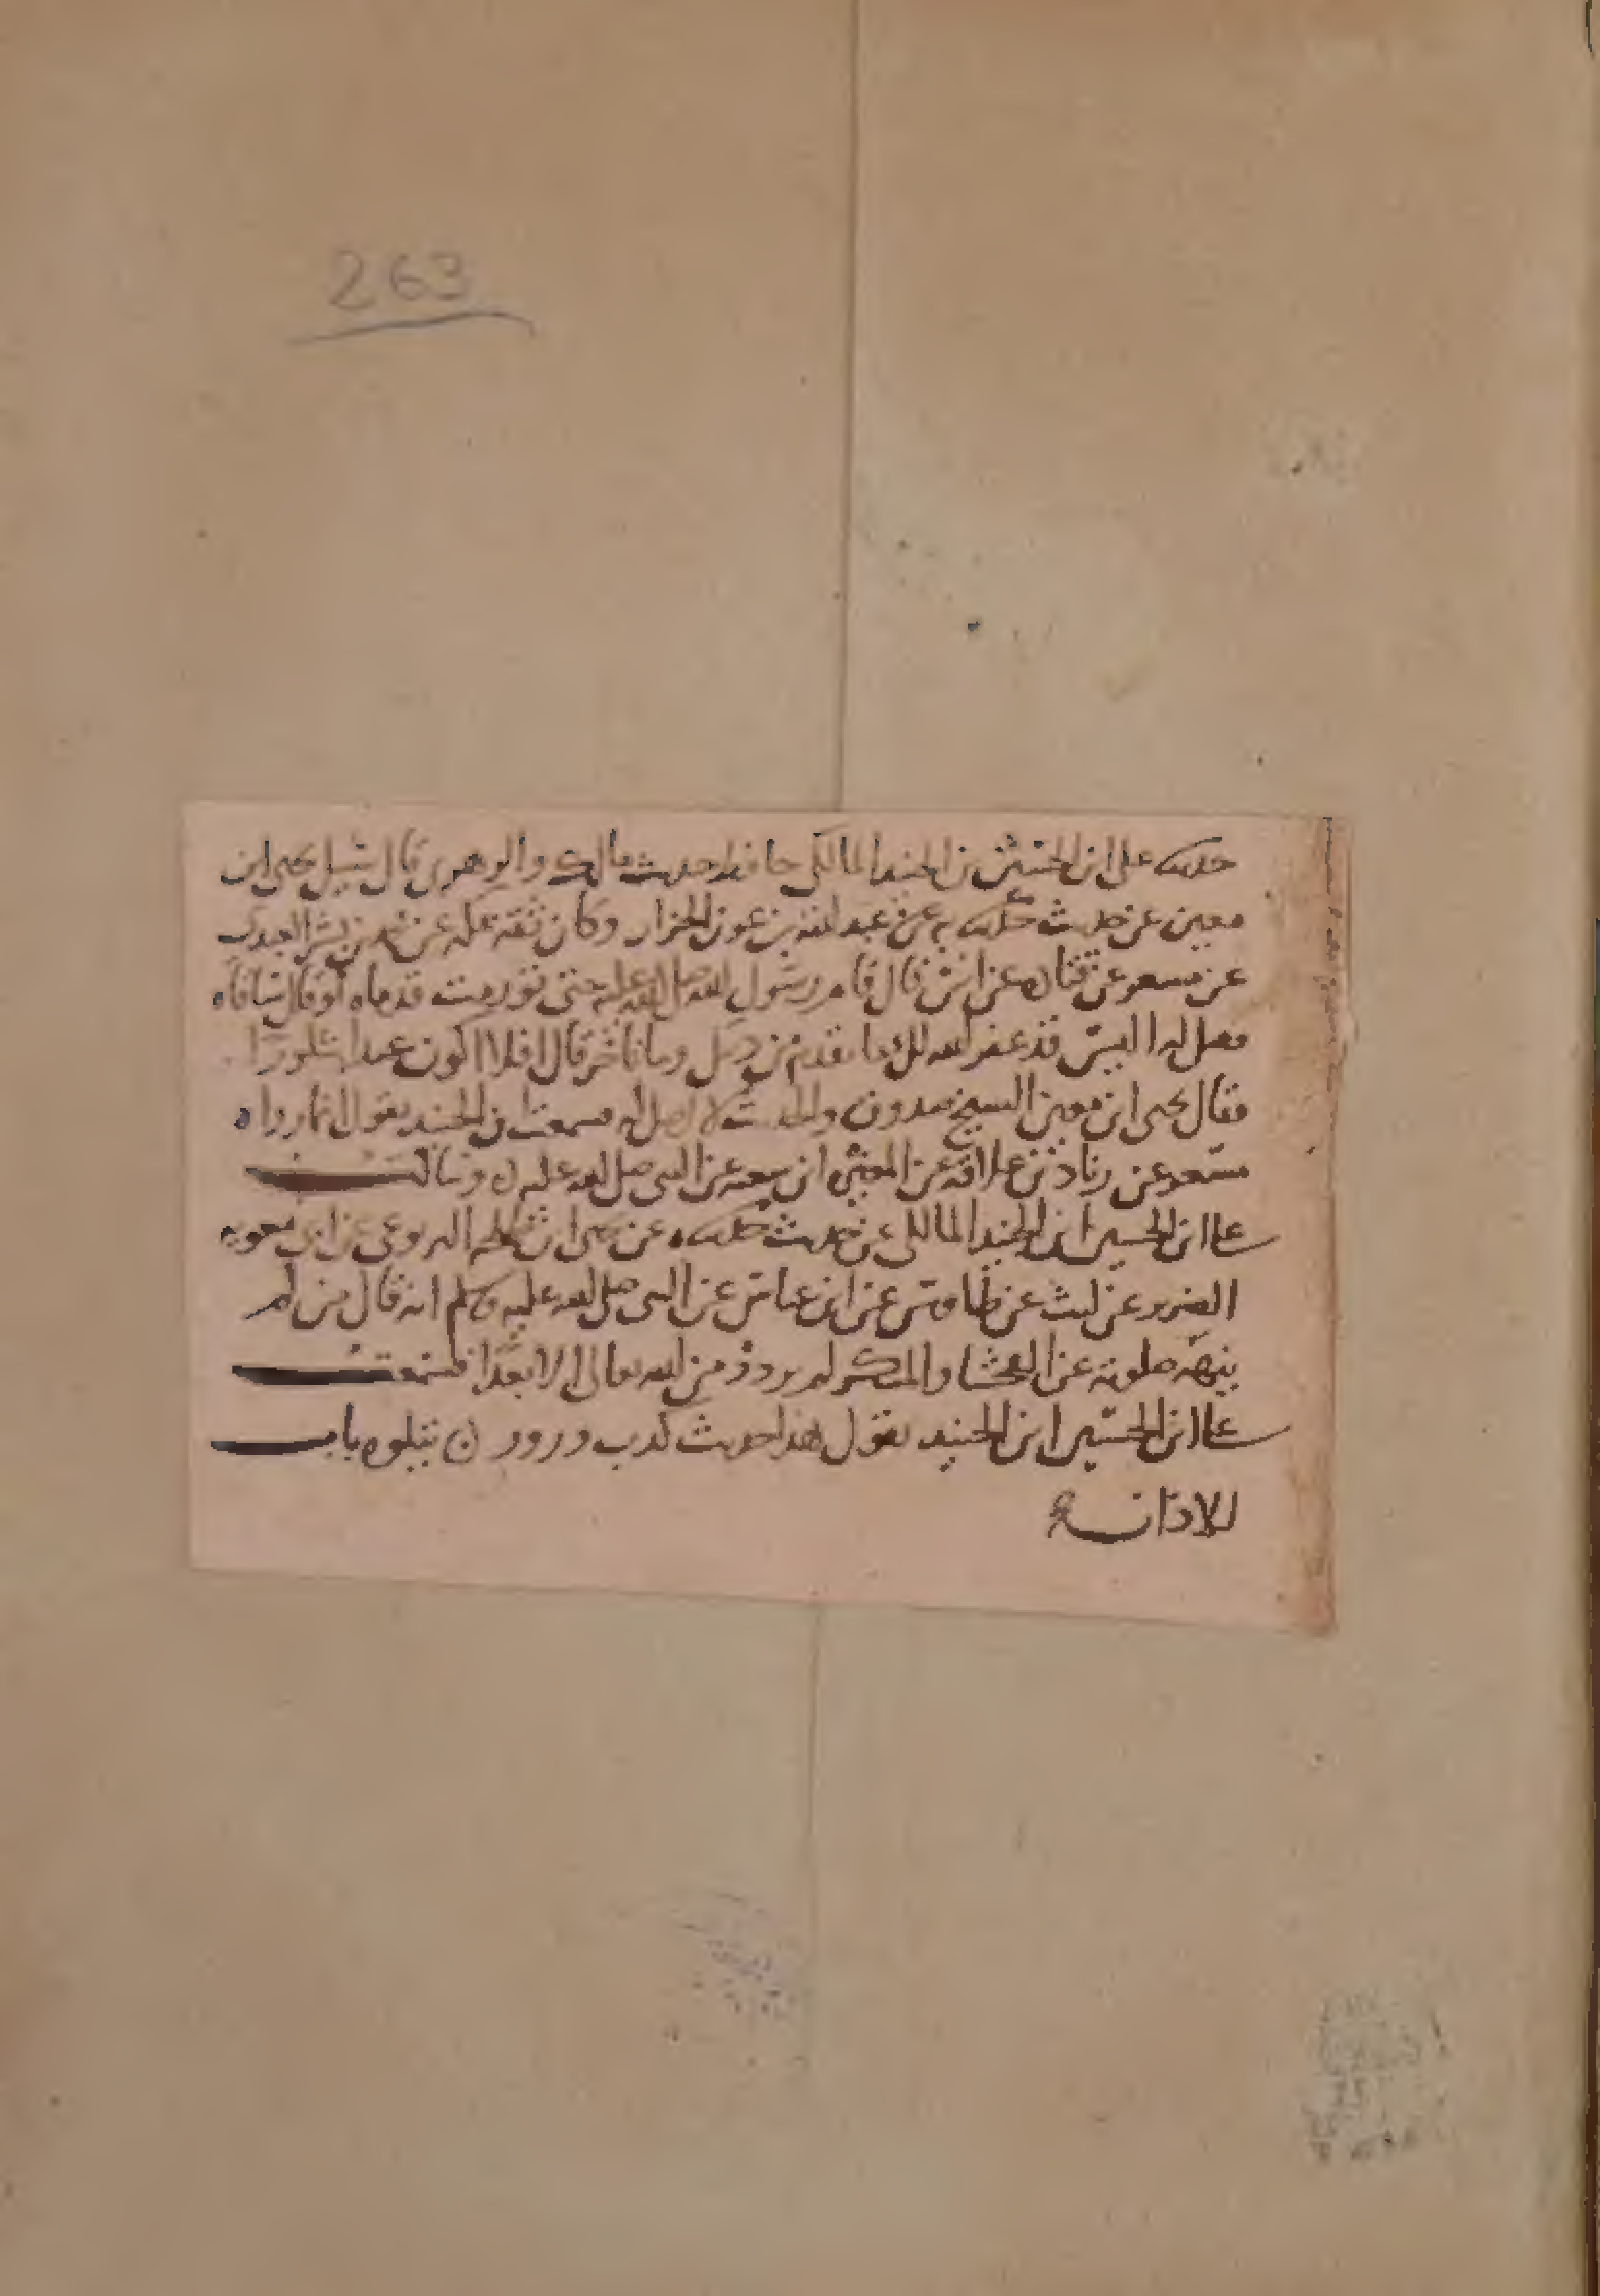 263
علي ابن الحسين بن الجنيد المالكي حافظ حديث مالك والزهري قال سئل يحيى ابن
معين عن حديث حدث به عن عبد الله بن عون الخزاز وكان ثقة عن محمد بن بشر العبدي
عن مسعر عن قتاده عن انس قال قام رسول الله صلى الله عليه حتى تورمت قدماه أو قال ساقاه
فقيل له اليس قد غفر الله لك ما تقدم من ذنبك وما تأخر قال افلا اكون عبدا شكورًا
فقال يحيى ابن معين الشيخ صدوق والحديث لا اصل له سمعت ابن الجنيد يقول انما رواه
مسعر عن زياد بن علاقة عن المغيره ابن شعبه عن النبي صلى الله عليه وسالت
علي ابن الحسين ابن الجنيد المالكي عن حديث عن يحيى ابن طلحه اليربوعي عن ابي معويه
الضرير عن ليث عن طاوس عن ابن عباس عن النبي صلى الله عليه وسلم انه قال من لم
ينهه صلوته عن الفحشا والمنكر لم يزدد من الله تعالى الا بعدًا فسمعت
علي ابن الحسين ابن الجنيد يقول هذا حديث كذب وزور يتلوه باب
الاذان